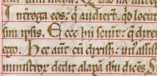 Interoga eos: qͥ audiert̄. qͩ locut
sum ip̄is. Ecce hii sciūt: q̄ dixerī
ego. Hec aūt cū dixiss̄: un̄
ministroꝝ dedit alapā ihū dicēs.